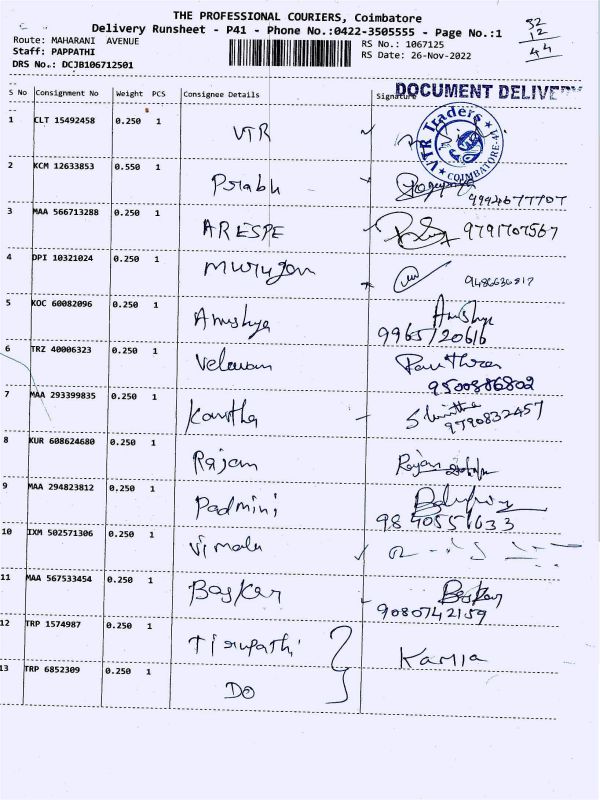 THE PROFESSIONAL COURIERS, Coimbatore
Delivery Runsheet - P41 - Phone No.:0422-3505555 - Page No.:1
Route: MAHARANI AVENUE
RS No.: 1067125
Staff: PAPPATHI
RS Date: 26-Nov-2022
DRS No.: DCJB106712501
32
12
44
DOCUMENT DELIVERY
S No Consignment No Weight PCS Consignee Details Signature
1 CLT 15492458 0.250 1 VTR
VTR Traders COIMBATORE-41
2 KCM 12633853 0.550 1 Prabh
9994677707
3 MAA 566713288 0.250 1 ARESPE 9791707567
4 DPI 10321024 0.250 1 Murugan
5 KOC 60082096 0.250 1 Anushya Anushya
9965720616
6 TRZ 40006323 0.250 1 Velavan
9500886802
7 MAA 293399835 0.250 1 Kavitha
9790832457
8 KUR 608624680 0.250 1 Rajam Rajam
9 MAA 294823812 0.250 1 Padmini
9840551633
10 IXM 502571306 0.250 1 Vimala
11 MAA 567533454 0.250 1 Baskar Baskar
9080742159
12 TRP 1574987 0.250 1 Tirupathi Kamla
13 TRP 6852309 0.250 1 DO